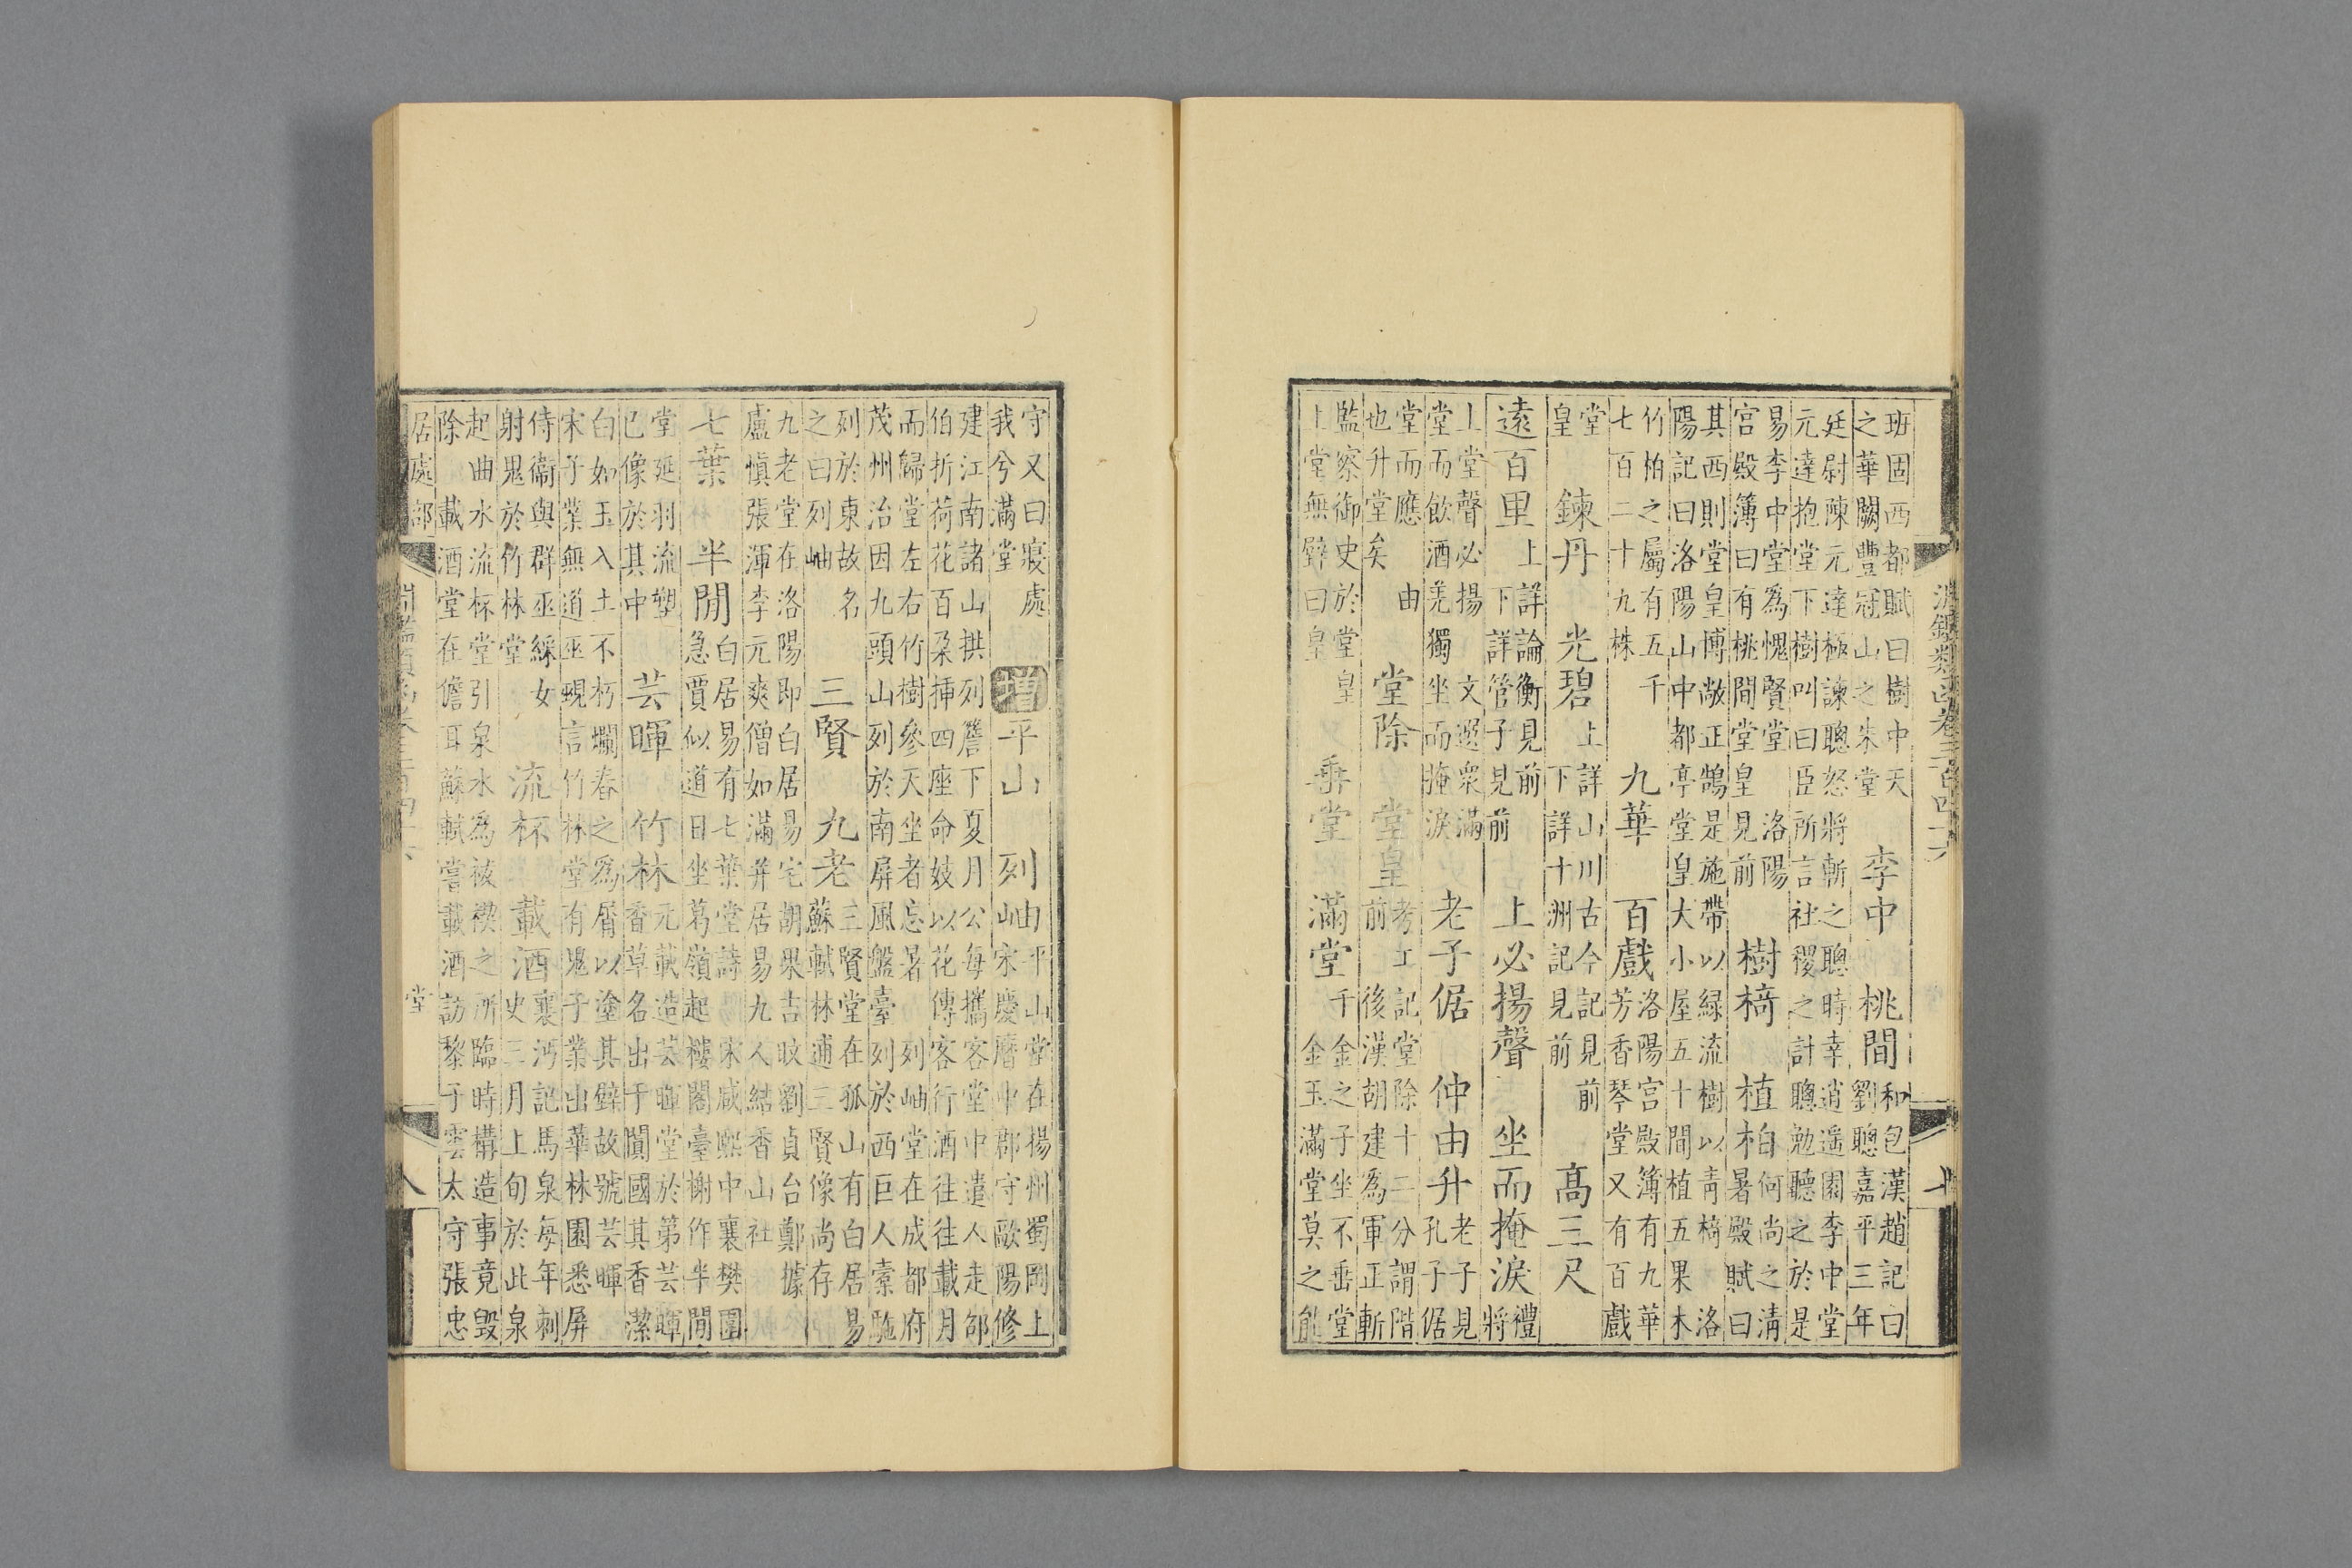 淵鑑類函卷三百四十六
班固西都賦曰樹中天
之華闕豐冠山之朱堂
李中
桃間
和包漢趙記曰
劉聰嘉平三年
廷尉陳元達極諫聰怒將斬之聰時幸逍遥園李中堂
元達抱堂下樹叫曰臣所言社稷之計聰勉聽之於是
易李中堂為愧賢堂 洛陽
宮殿簿曰有桃間堂皇見前
樹椅
植柏
何尚之清
暑殿賦曰
其西則堂皇博敞正鵠是施帶以緑流樹以靑椅 洛
陽記曰洛陽山中都亭堂皇大小屋五十間植五果木
竹柏之屬有五千
七百二十九株
九華
百戲
洛陽宮殿簿有九華
芳香琴堂又有百戲
堂
皇
鍊丹
光碧
上詳山川古今記見前
下詳十洲記見前
高三尺
遠百里
上詳論衡見前
下詳管子見前
上必揚聲
坐而掩淚
禮
將
上堂聲必揚 文選衆滿
堂而飲酒羌獨坐而掩淚
老子倨
仲由升
老子見
孔子倨
堂而應 由
也升堂矣
堂除
堂皇
考工記堂除十二分謂階
前 後漢胡建為軍正斬
監察御史於堂皇
上堂無壁曰皇
垂堂
滿堂
千金之子坐不垂堂
金玉滿堂莫之能
守又曰寢處
我兮滿堂
增
平山
列岫
平山堂在揚州蜀岡上
宋慶曆中郡守歐陽修
建江南諸山拱列簷下夏月公每攜客堂中遣人走邵
伯折荷花百朶揷四座命妓以花傳客行酒往往載月
而歸堂左右竹樹參天坐者忘暑 列岫堂在成都府
茂州治因九頭山列於南屏風盤臺列於西巨人橐駞
列於東故名
之曰列岫
三賢
九老
三賢堂在孤山有白居易
蘇軾林逋三賢像尚存
九老堂在洛陽即白居易宅胡杲吉旼劉貞台鄭據
盧愼張渾李元爽僧如滿幷居易九人結香山社
七葉
半閒
白居易有七葉堂詩 宋咸熙中襄樊圍
急賈似道日坐葛嶺起樓閣臺榭作半閒
堂延羽流塑
已像於其中
芸暉
竹林
元載造芸暉堂於第芸暉
香草名出于闐國其香潔
白如玉入土不朽爛舂之為屑以塗其壁故號芸暉
宋子業無道巫覡言竹林堂有鬼子業出華林園悉屏
侍衞與群巫綵女
射鬼於竹林堂
流杯
載酒
襄沔記馬泉每年刺
史三月上旬於此泉
起曲水流杯堂引泉水為祓禊之所臨時構造事竟毀
除 載酒堂在儋耳蘇軾嘗載酒訪黎子雲太守張忠
居處部
堂
八